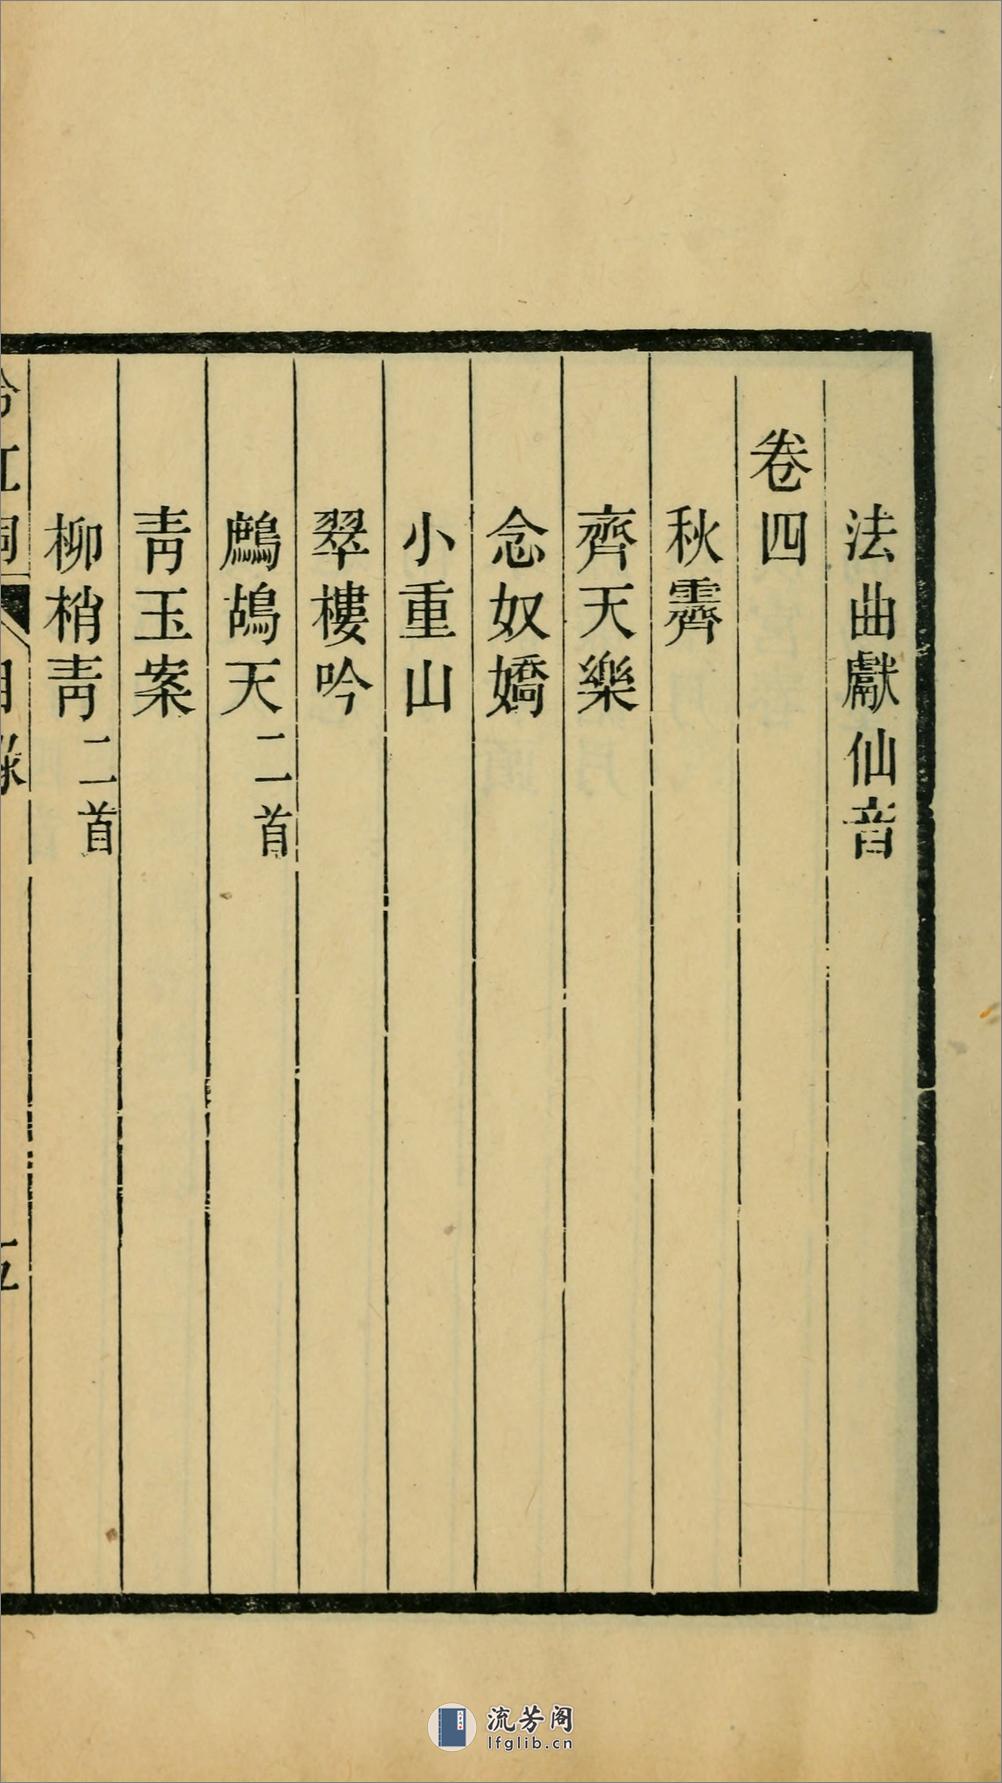 法曲獻仙音
卷四
秋霽
齊天樂
念奴嬌
小重山
翠樓吟
鷓鴣天二首
青玉案
柳梢青二首
流芳阁
lfglib.cn